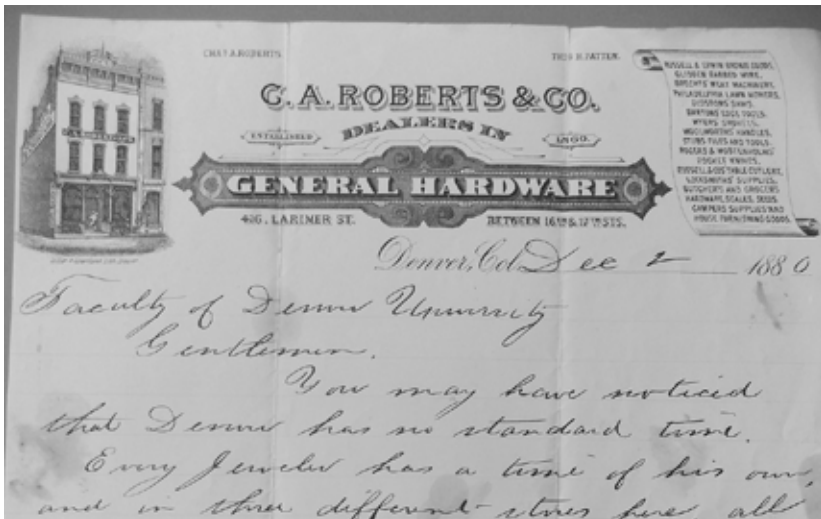 CHAS. A. ROBERTS.
THOS. H. PATTEN.
C. A. ROBERTS & CO.
DEALERS IN
ESTABLISHED
1860.
GENERAL HARDWARE
426. LARIMER ST.
BETWEEN 16TH & 17TH STS.
RUSSELL & ERWIN BRONZE GOODS,
GLIDDEN BARBED WIRE,
MEAT MACHINERY,
PHILADELPHIA LAWN MOWERS,
DISSTONS SAWS,
BARTONS EDGE TOOLS,
MYERS
WOOLWORTHS HANDLES,
STUBS FILES AND TOOLS,
RODGERS & WOSTENHOLMS'
POCKET KNIVES,
RUSSELL & COS TABLE CUTLERY,
LOCKSMITHS' SUPPLIES,
BUTCHERS AND GROCERS
HARDWARE, SCALES, SEEDS.
CAMPERS SUPPLIES AND
HOUSE FURNISHING GOODS.
Denver, Col. Dec 2 1880
Faculty of Denver University
Gentlemen.
You may have noticed
that Denver has no standard time.
Every Jeweler has a time of his own,
and in three different stores here all